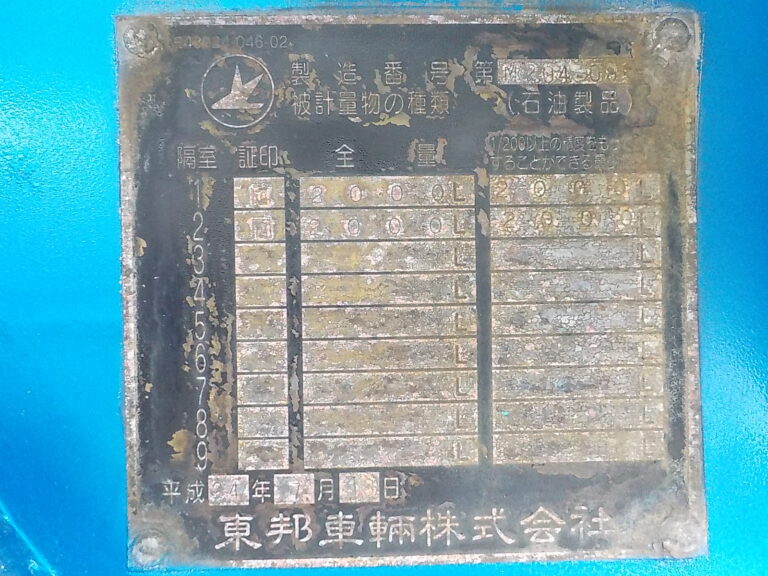 046-02
製造番号 第
被計量物の種類 (石油製品)
隔室 証印 全量 1/200以上の精度をもつ
することができる
1 2000L 2000L
2 2000L 2000L
3 L L
4 L L
5 L L
6 L L
7 L L
8 L L
9 L L
平成24年7月 日
東邦車輛株式会社